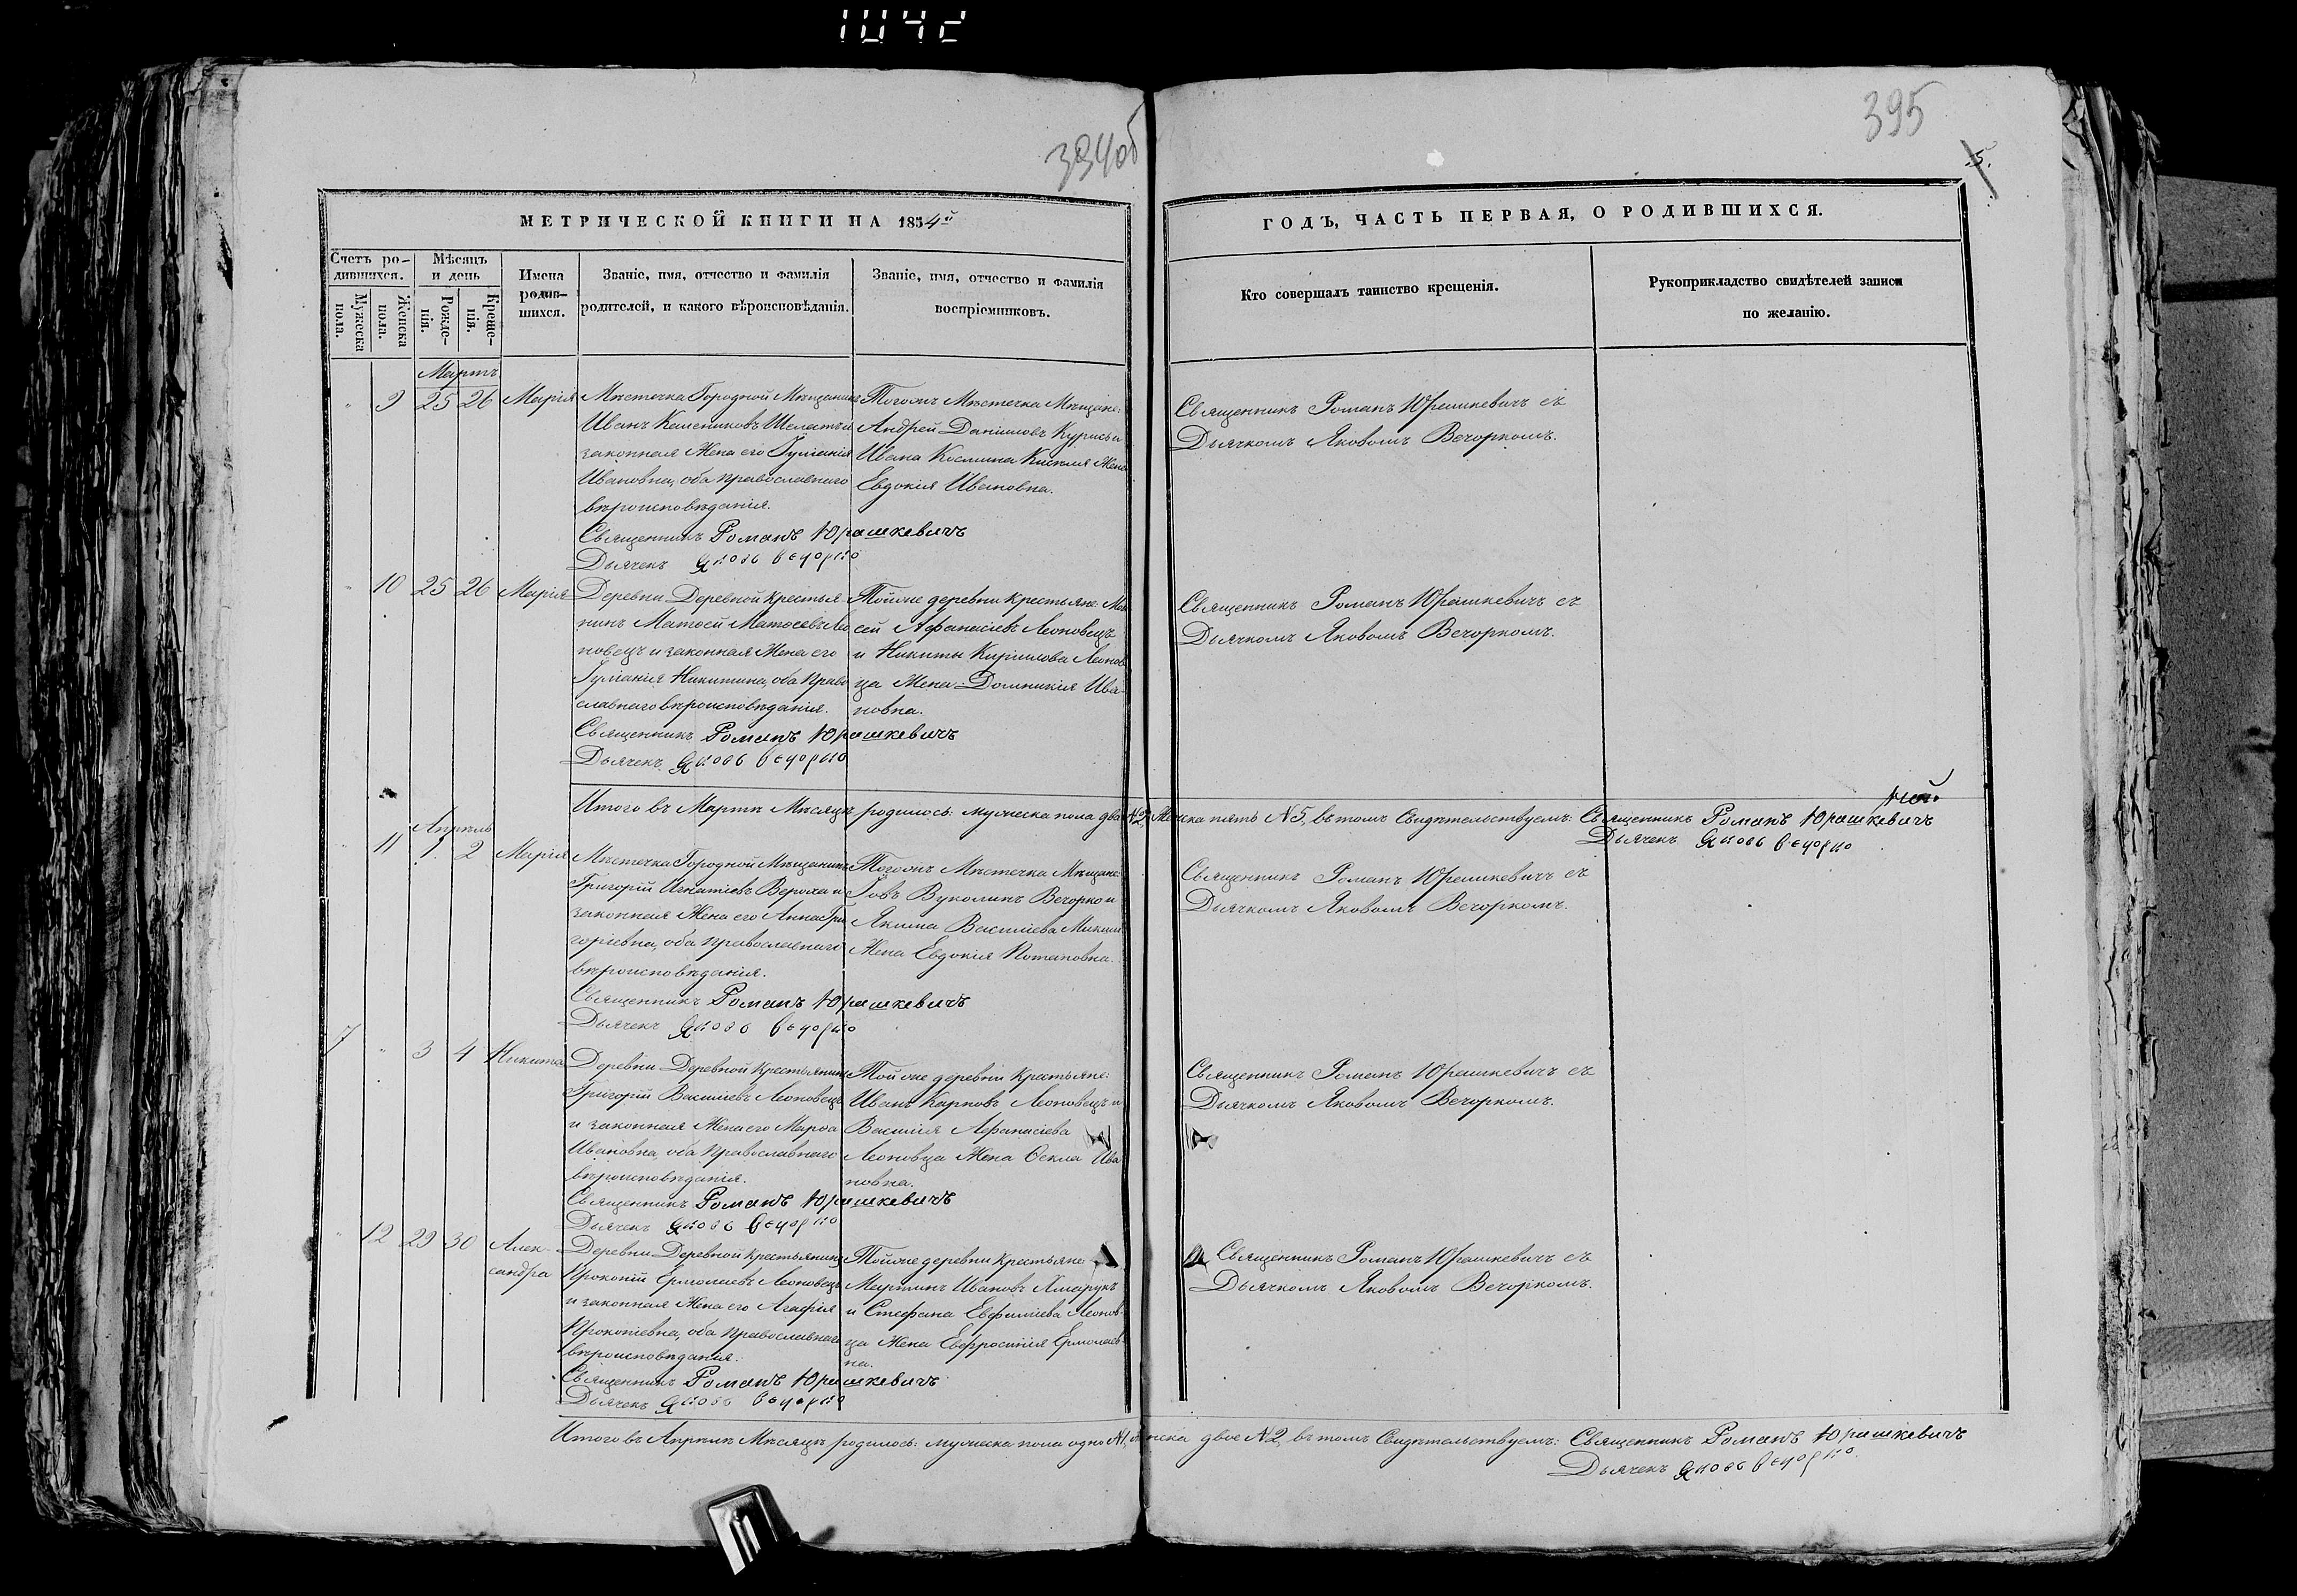 1042
394об
395
.5.
МЕТРИЧЕСКОЙ КНИГИ НА 1854й
ГОДЪ, ЧАСТЬ ПЕРВАЯ, О РОДИВШИХСЯ.
Счетъ ро-
дившихся.
Мужеска
пола.
Женска
пола.
Мѣсяцъ
и день
Рожде-
нія.
Креще-
нія.
Имена
родив-
шихся.
Званіе, имя, отчество и фамилія
родителей, и какого вѣроисповѣданія.
Званіе, имя, отчество и фамилія
воспріемниковъ.
Кто совершалъ таинство крещенія.
Рукоприкладство свидѣтелей записи
по желанію.
Мартъ
9 25 26 Марія
Мѣстечка Городной Мѣщанинъ
Иванъ и
законная Жена его Гулианія
Ивановна, оба православнаго
вѣроисповѣданія.
Священникъ Романъ Юрашкевичъ
Дьячекъ Яковъ Вечорко
Тогожъ Мѣстечка Мѣщане:
Андрей Даніиловъ Курисъ и
Ивана Космина Жена
Евдокія Ивановна.
Священникъ Романъ Юрашкевичъ съ
Дьячкомъ Яковомъ Вечоркомъ.
10 25 26 Марія
Деревни Деревной крестья-
нинъ Матөей Матөеевъ Лео
новецъ и законная Жена его
Гулианія Никитина, оба право
славнаго вѣроисповѣданія.
Священникъ Романъ Юрашкевичъ
Дьячекъ Яковъ Вечорко
Тойже деревни крестьяне: Мои
сей Афанасіевъ Леоновецъ
и Никиты Кирилова Леонов
ца Жена Домникія Ива-
новна.
Священникъ Романъ Юрашкевичъ съ
Дьячкомъ Яковомъ Вечоркомъ.
Итого въ Мартѣ Мѣсяцѣ родилось: мужеска пола два №2, Женска пять №5, въ томъ Свидѣтельствуемъ: Священникъ Романъ Юрашкевичъ
Дьячекъ Яковъ Вечорко
Апрѣль
11 1 2 Марія
Мѣстечка Городной Мѣщанинъ
Григорій Игнатіевъ Вероха и
законная Жена его Анна Гри
горіевна, оба православнаго
вѣроисповѣданія.
Священникъ Романъ Юрашкевичъ
Дьячекъ Яковъ Вечорко
Тогожъ Мѣстечка Мѣщане:
Іовъ Вуколинъ Вечорко и
Якима Василіева
Жена Евдокія Потаповна.
Священникъ Романъ Юрашкевичъ съ
Дьячкомъ Яковомъ Вечоркомъ.
7 3 4 Никита
Деревни Деревной Крестьянинъ
Григорій Василіевъ Леоновецъ
и законная Жена его Марөа
Ивановна, оба православнаго
вѣроисповѣданія.
Священникъ Романъ Юрашкевичъ
Дьячекъ Яковъ Вечорко
Той же деревни Крестьяне:
Иванъ Карповъ Леоновецъ и
Василія Афанасіева
Леоновца Жена Өекла Ива
новна.
Священникъ Романъ Юрашкевичъ съ
Дьячкомъ Яковомъ Вечоркомъ.
12 29 30 Алек-
сандра
Деревни Деревной Крестьянинъ
Прокопій Ермолаевъ Леоновецъ
и законная Жена его Агафія
Прокопіевна, оба православнаго
вѣроисповѣданія.
Священникъ Романъ Юрашкевичъ
Дьячекъ Яковъ Вечорко
Тойже деревни крестьяне
Мартинъ Ивановъ
и Стефана Евфиміева Леонов-
ца Жена Евфросинія Ермолаев-
на.
Священникъ Романъ Юрашкевичъ съ
Дьячкомъ Яковомъ Вечоркомъ.
Итого въ Апрѣлѣ Мѣсяцѣ родилось: мужеска пола одно №1, женска двое №2, въ томъ Свидѣтельствуемъ: Священникъ Романъ Юрашкевичъ
Дьячекъ Яковъ Вечорко.